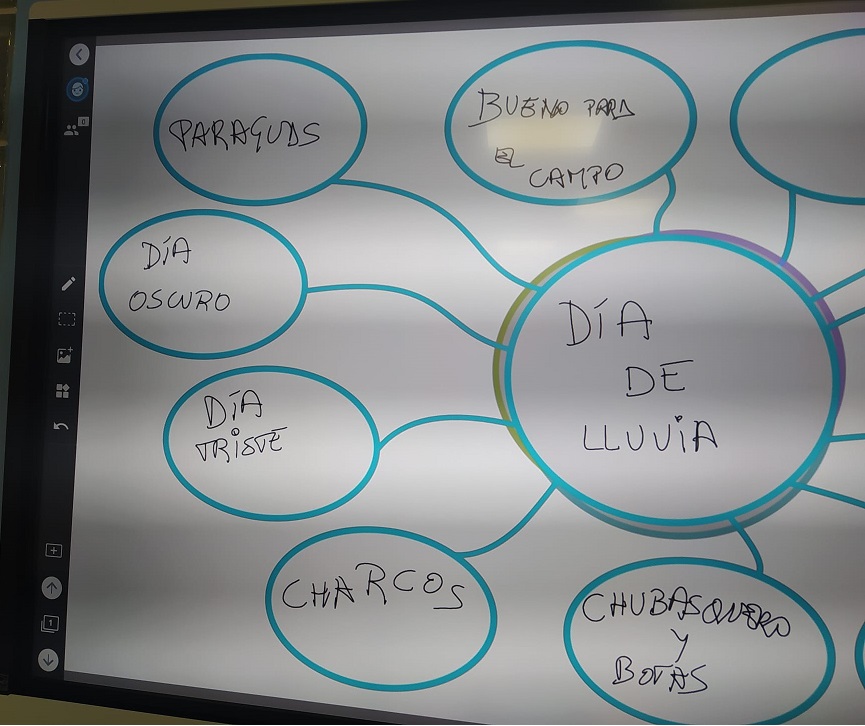 PARAGUAS
BUENO PARA
EL
CAMPO
DÍA
OSCURO
DÍA
TRISTE
CHARCOS
DÍA
DE
LLUVIA
CHUBASQUERO
Y
BOTAS
0
1